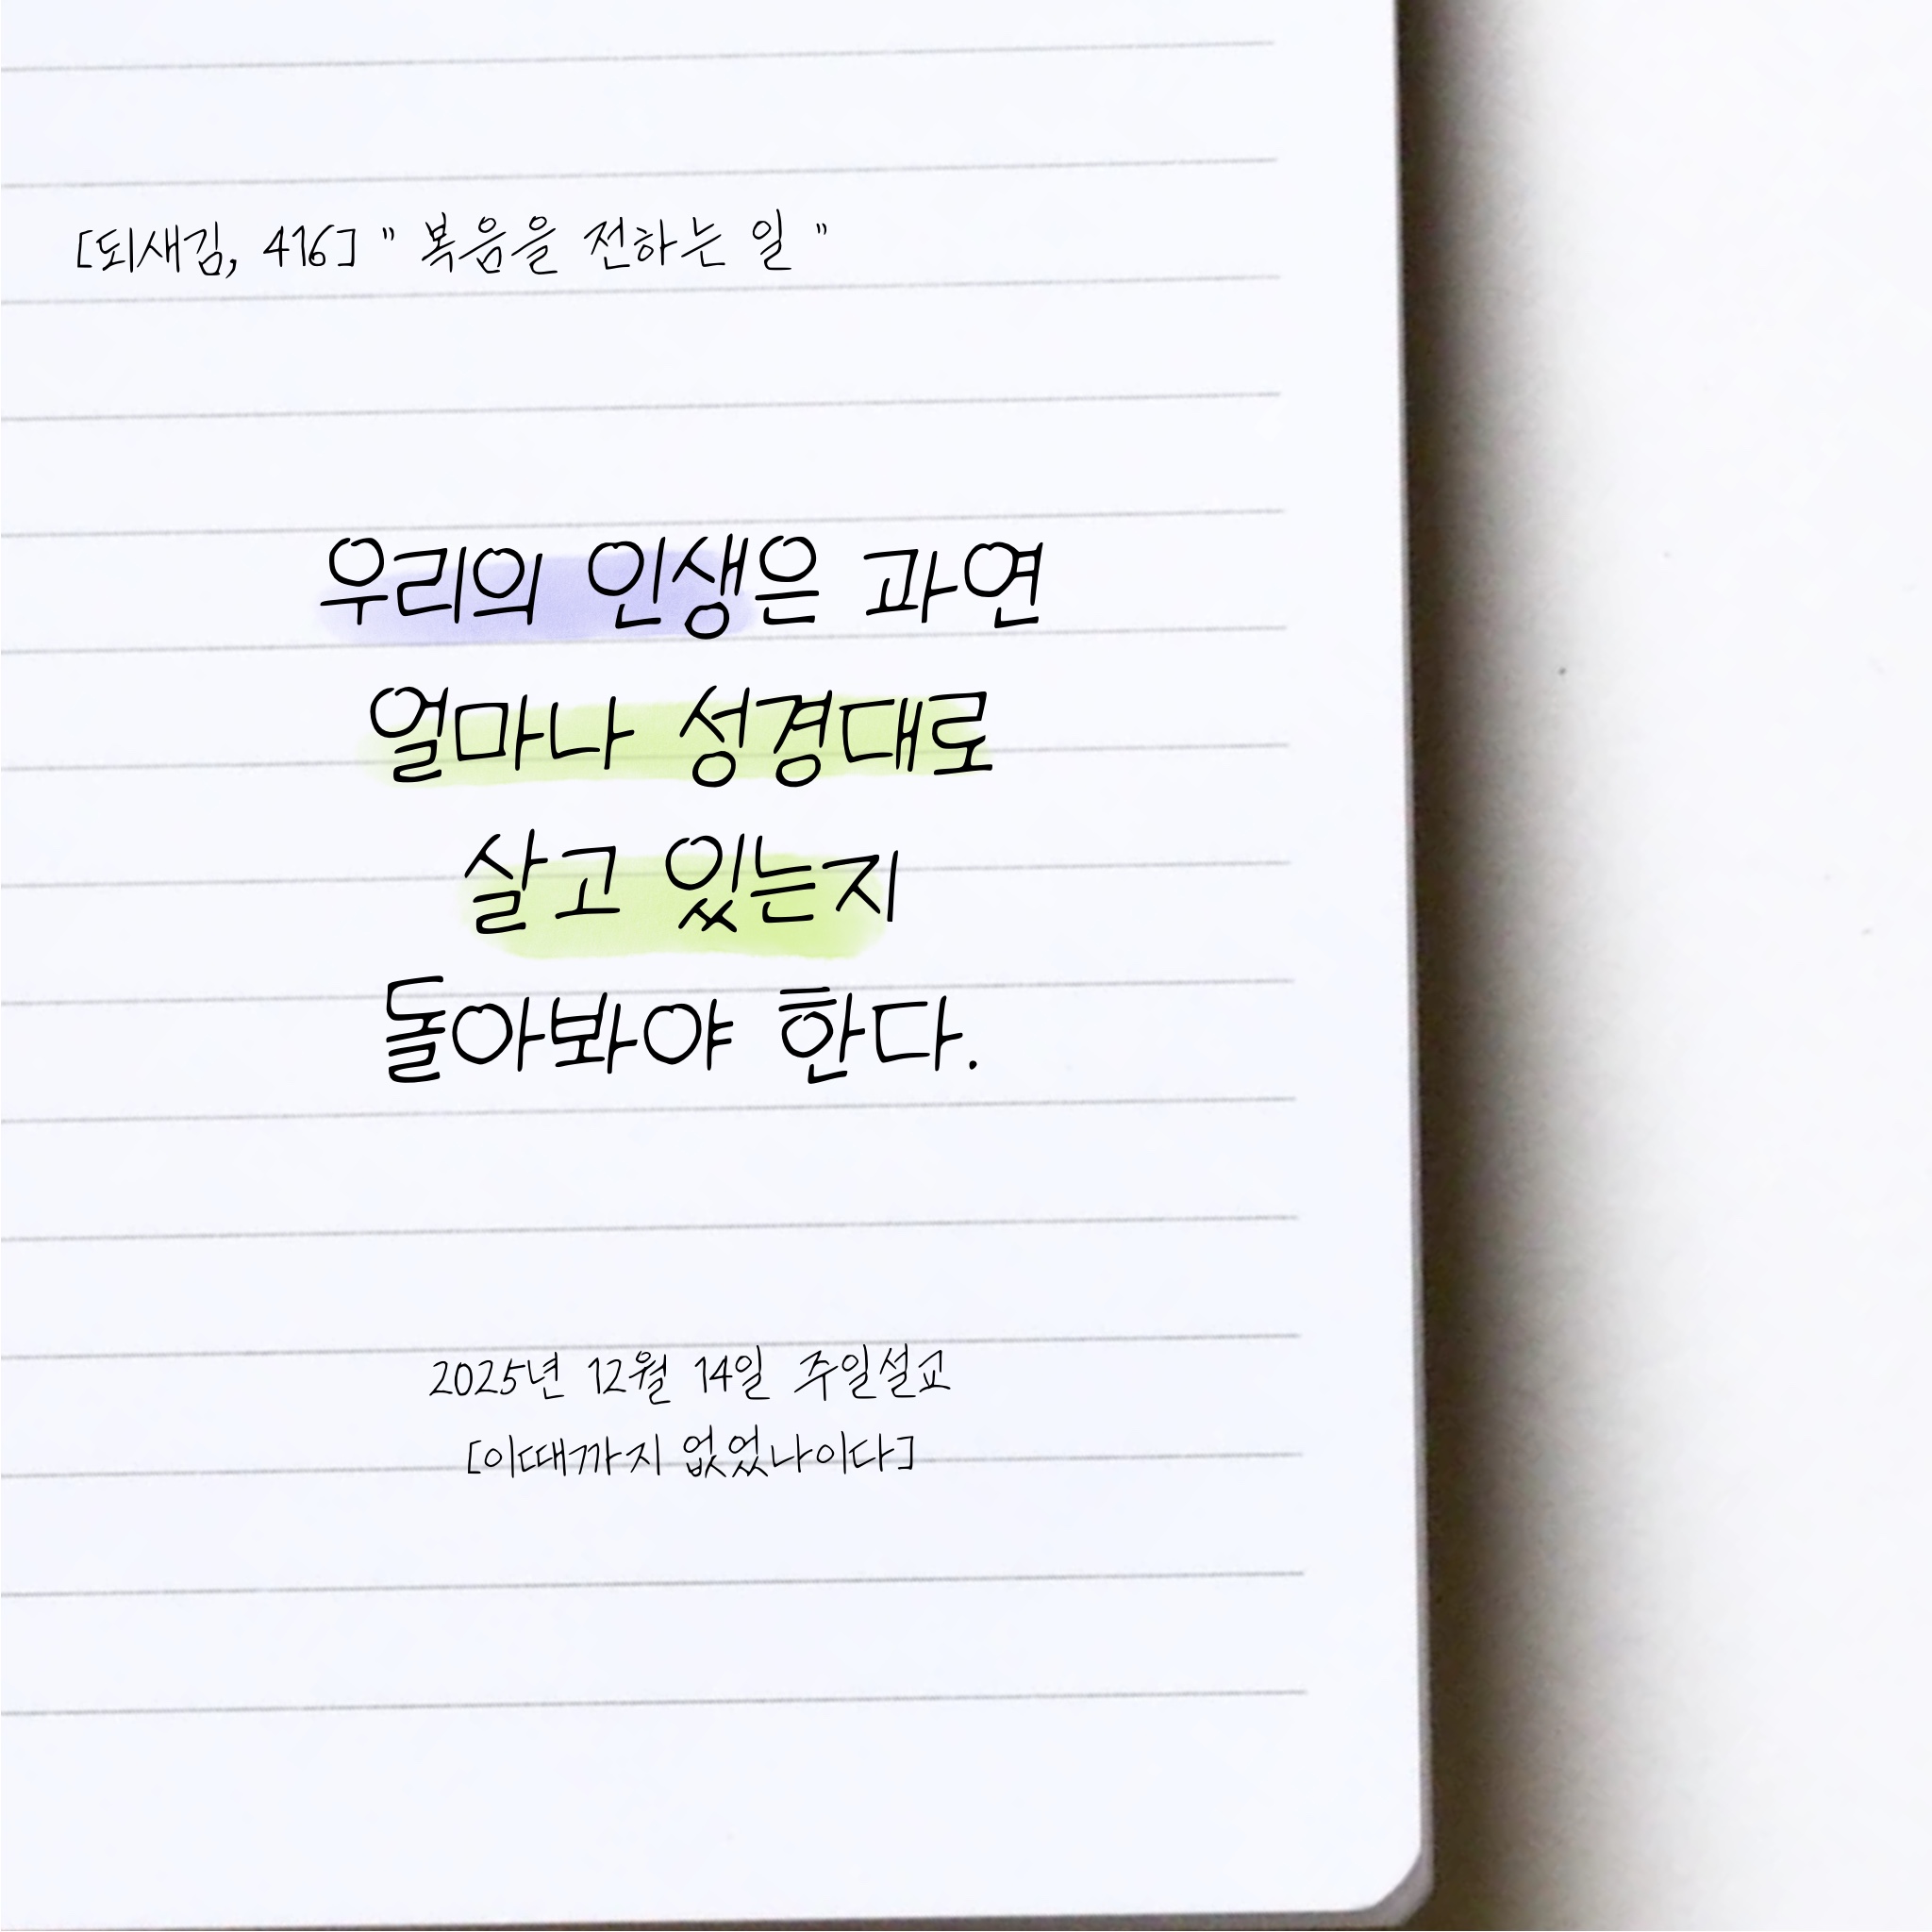 [되새김, 416] " 복음을 전하는 일 "
우리의 인생은 과연
얼마나 성경대로
살고 있는지
돌아봐야 한다.
2025년 12월 14일 주일설교
[이때까지 없었나이다]